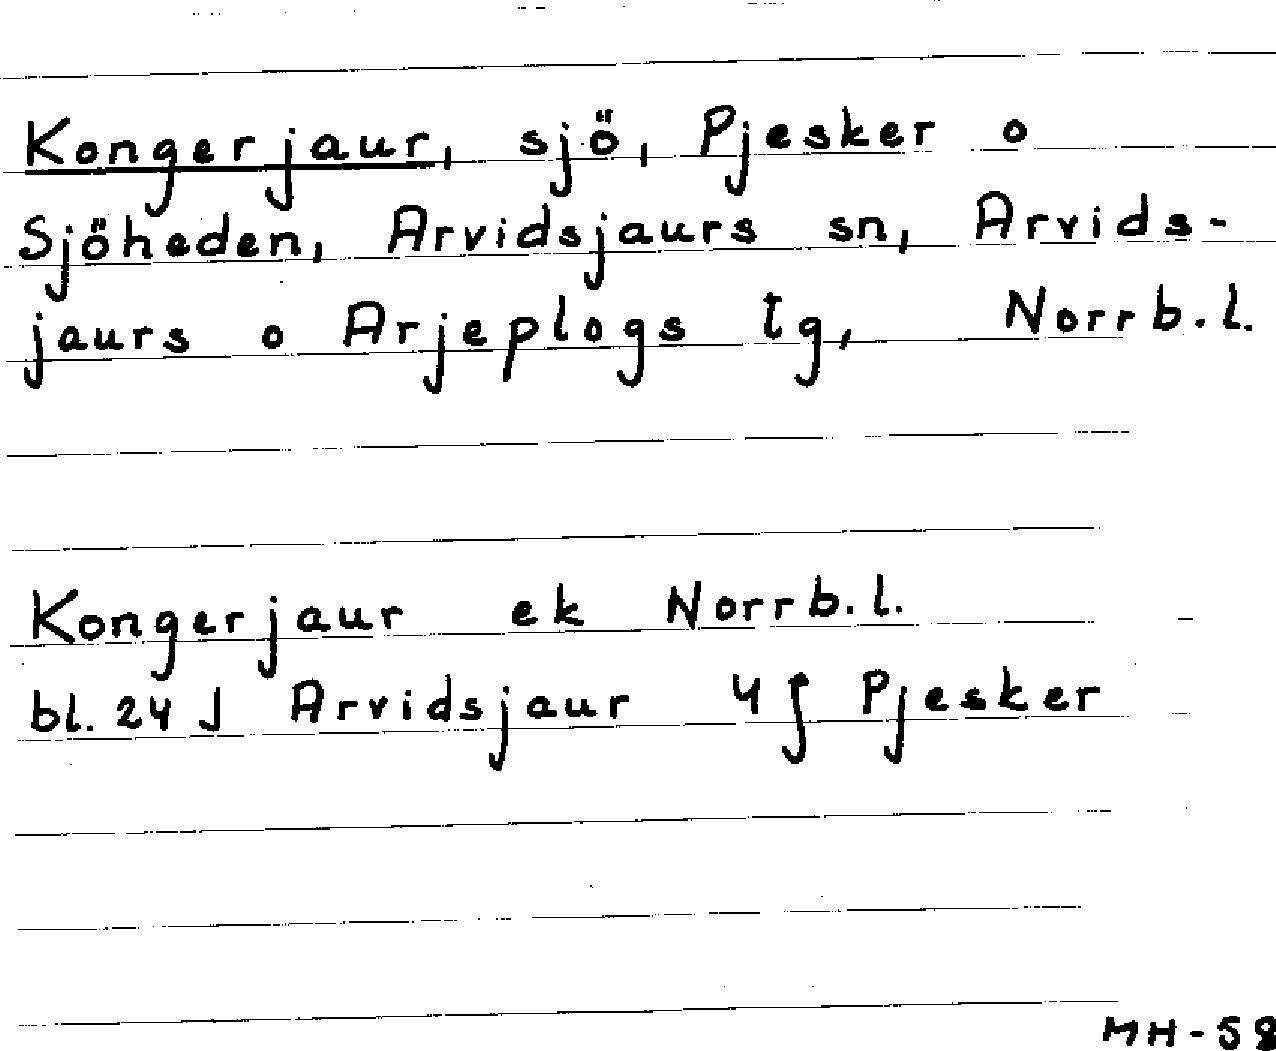 Kongerjaur, sjö, Pjesker o
Sjöheden, Arvidsjaurs sn, Arvids-
jaurs o Arjeplogs tg, Norrb.l.
Kongerjaur ek Norrb.l.
bl. 24 J Arvidsjaur 4 f Pjesker
MH-58